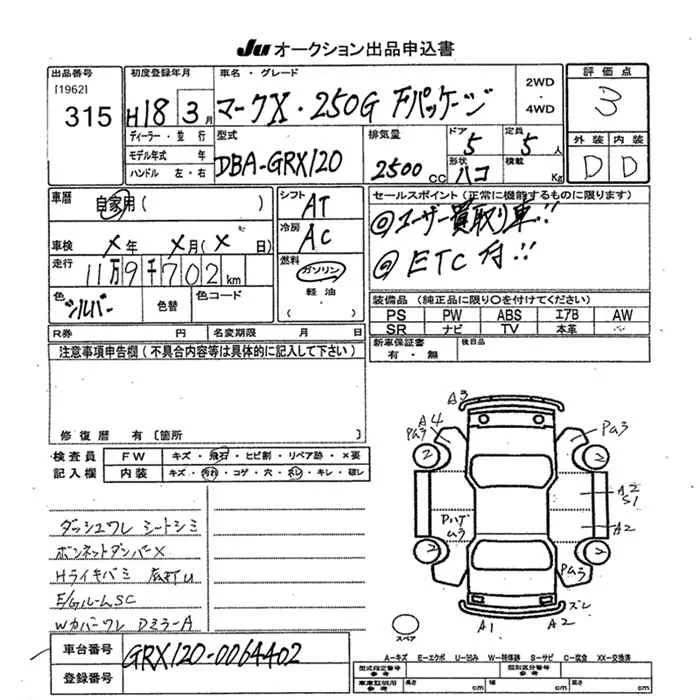 JU オークション出品申込書
出品番号 初度登録年月 車名・グレード 2WD 評価点
[1962] 315 H18 3月 マークX・250G Fパッケージ ・4WD 3
ディーラー・並行 型式 排気量 ドア 定員 外装 内装
モデル年式 年 DBA-GRX120 2500cc 5 5人 D D
ハンドル 左・右 形状 ハコ 積載 Kg
車歴 自家用( ) シフト AT セールスポイント(正常に機能するものに限ります)
冷房 AC ◎ユーザー買取り車!!
車検 X年 X月(X日) ◎ETC付!!
走行 11万9千702km 燃料 ガソリン
軽油
( )
色 シルバー 色替 色コード 装備品(純正品に限り○を付けてください)
PS PW ABS エアB AW
R券 円 名変期限 月 日 SR ナビ TV 本革
注意事項申告欄(不具合内容等は具体的に記入して下さい) 新車保証書 有・無 後日品
修復歴 有 〔箇所
検査員 FW キズ・飛石・ヒビ割・リペア跡・×要
記入欄 内装 キズ・汚れ・コゲ・穴・スレ・キレ・破レ
A3
A4
Pムラ
Pムラ
2
2
A2
S1
Pハゲ
ムラ
A2
2
2
Pムラ
A1
A2
ズレ
スペア
ダッシュワレ シートシミ
ボンネットダンパーX
Hライキバミ
E/GルームSC
Wカバーワレ DミラーA
車台番号 GRX120-0064402
登録番号
A-キズ E-エクボ U-凹み W-補修跡 S-サビ C-腐食 XX-交換済
型式指定番号 参考 類別区分番号 参考
車庫証明用 参考 長さ cm 幅 cm 高さ cm